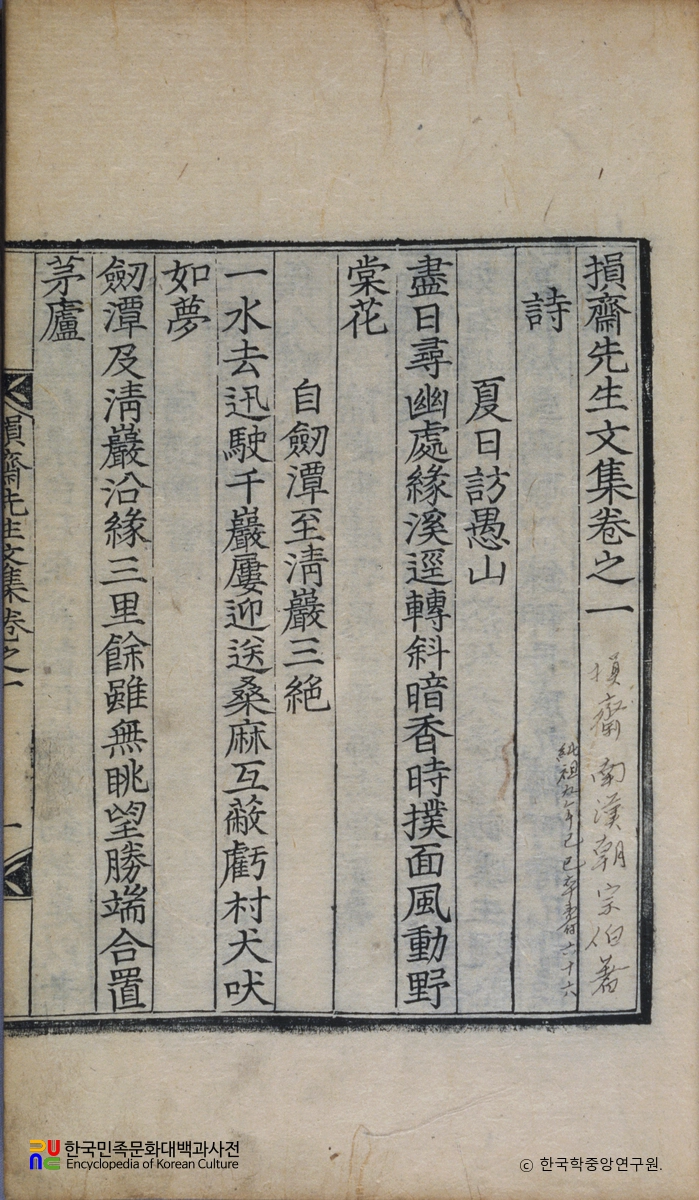 損齋先生文集卷之一
損齋 南漢朝 宗伯 著
純祖九年己巳卒 壽六十六
詩
夏日訪愚山
盡日尋幽處緣溪逕轉斜暗香時撲面風動野
棠花
自劒潭至淸巖三絶
一水去迅駛千巖屢迎送桑麻互蔽虧村犬吠
如夢
劒潭及淸巖沿緣三里餘雖無眺望勝端合置
茅廬
損齋先生文集卷之一
一
한국민족문화대백과사전
Encyclopedia of Korean Culture
ⓒ 한국학중앙연구원.